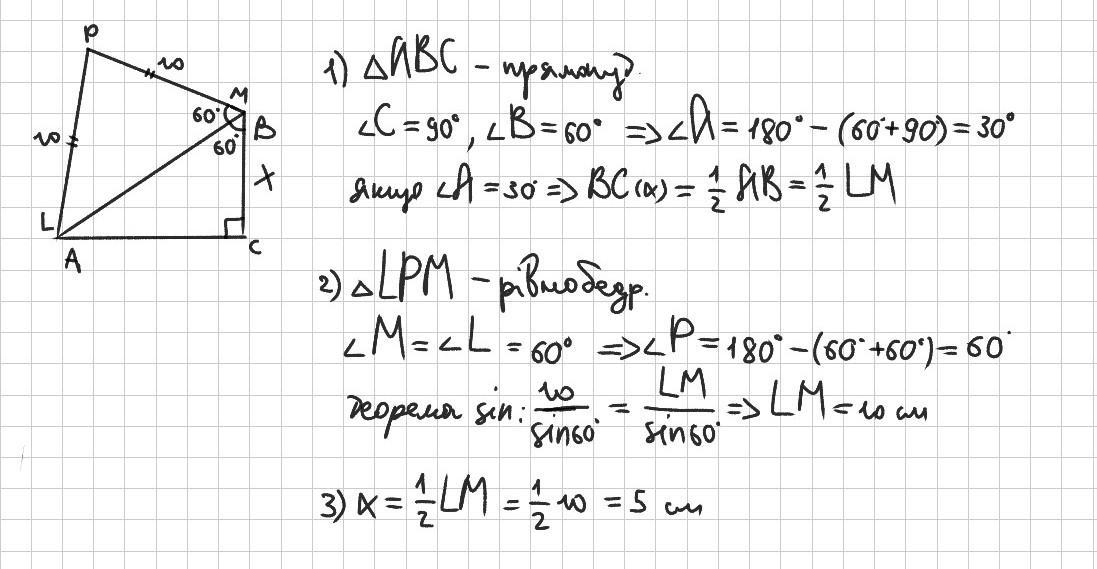 P
10
M
60°
B
10
60°
x
L
A
C
1) △ABC - прямокут.
∠C = 90°, ∠B = 60° => ∠A = 180° - (60°+90°) = 30°
якщо ∠A = 30° => BC(x) = 1/2 AB = 1/2 LM
2) △LPM - рівнобедр.
∠M = ∠L = 60° => ∠P = 180° - (60° + 60°) = 60°
теорема sin: 10/sin60° = LM/sin60° => LM = 10 см
3) x = 1/2 LM = 1/2 10 = 5 см